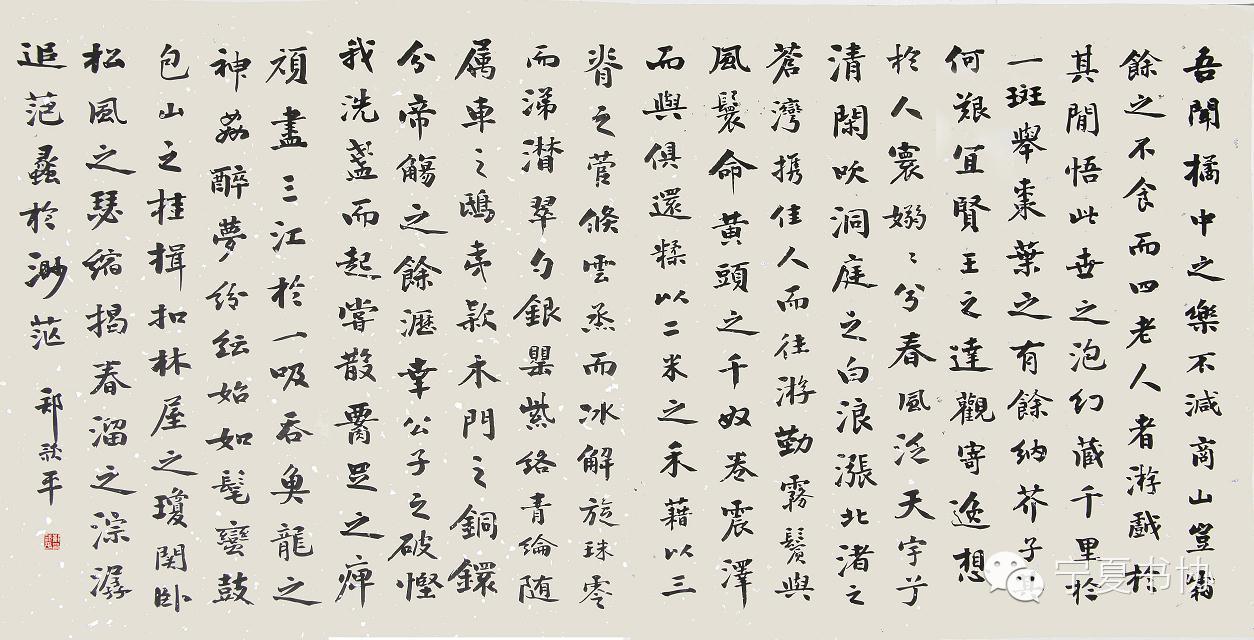 吾聞橘中之樂不減商山豈霜
餘之不食而四老人者游戲於
其間悟此世之泡幻藏千里於
一斑舉棗葉之有餘納芥子
何艱宜賢王之達觀寄逸想
於人寰嫋〻兮春風泛天宇兮
清閑吹洞庭之白浪漲北渚之
蒼灣携佳人而往游勤霧鬢與
風鬟命黃頭之千奴卷震澤
而與俱還糅以二米之禾藉以三
脊之菅倏雲蒸而冰解旋珠零
而涕潸翠勺銀罌紫絡青綸随
屬車之鴟夷款木門之銅鐶
分帝觴之餘瀝幸公子之破慳
我洗盞而起嘗散腰足之痺
頑盡三江於一吸吞魚龍之
神姦醉夢紛紜始如髦蠻鼓
包山之桂楫扣林屋之瓊関卧
松風之瑟縮揭春溜之淙潺
追范蠡於渺茫
宁夏书协